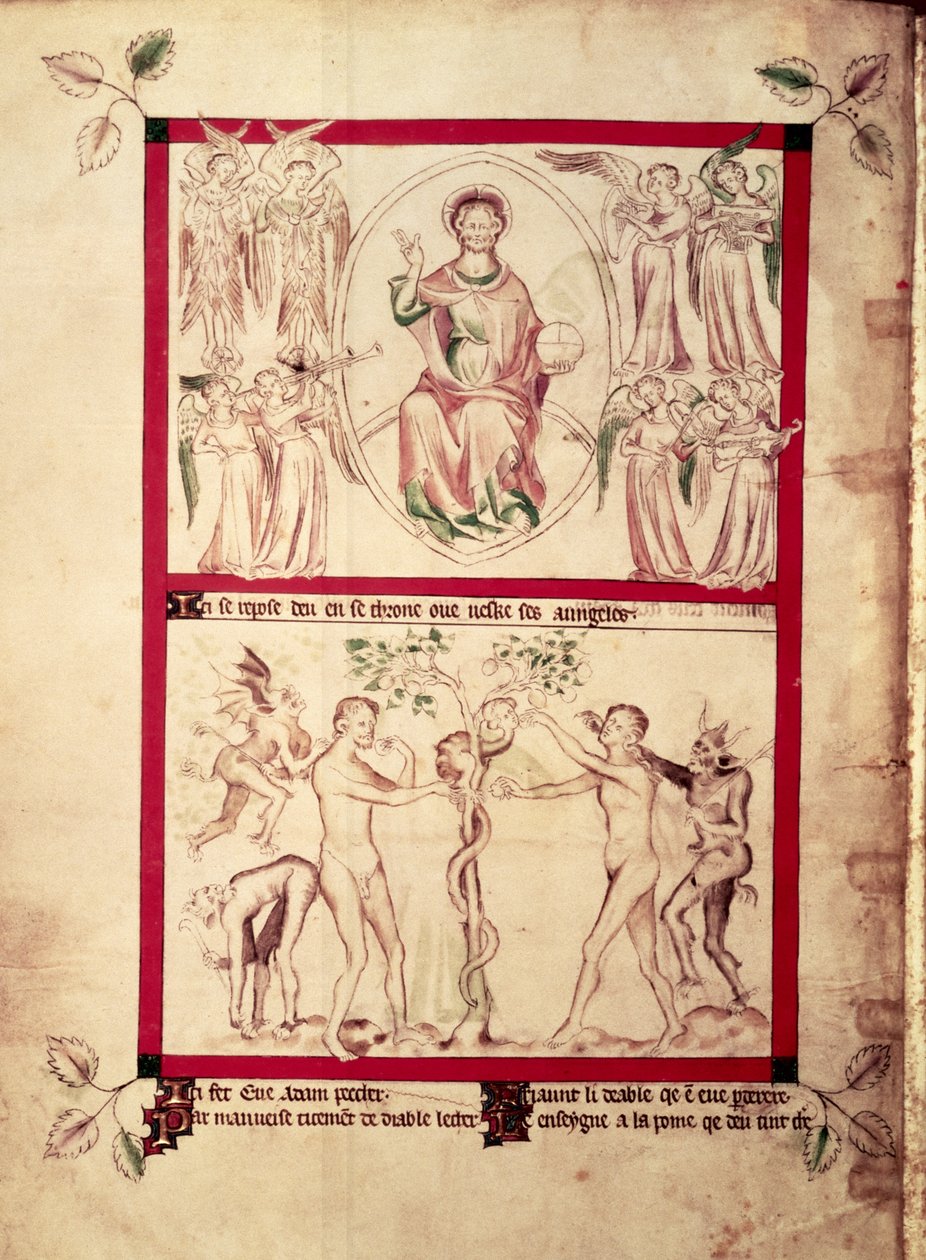 Ici se repose deu en se throne oue ueske ses aungeles.
Ici fet Eue Adam peccher.
Par mauueise ticemēt de diable lecher
Criaunt li deable qe ē eue
Le enseygne a la pome qe deu tint